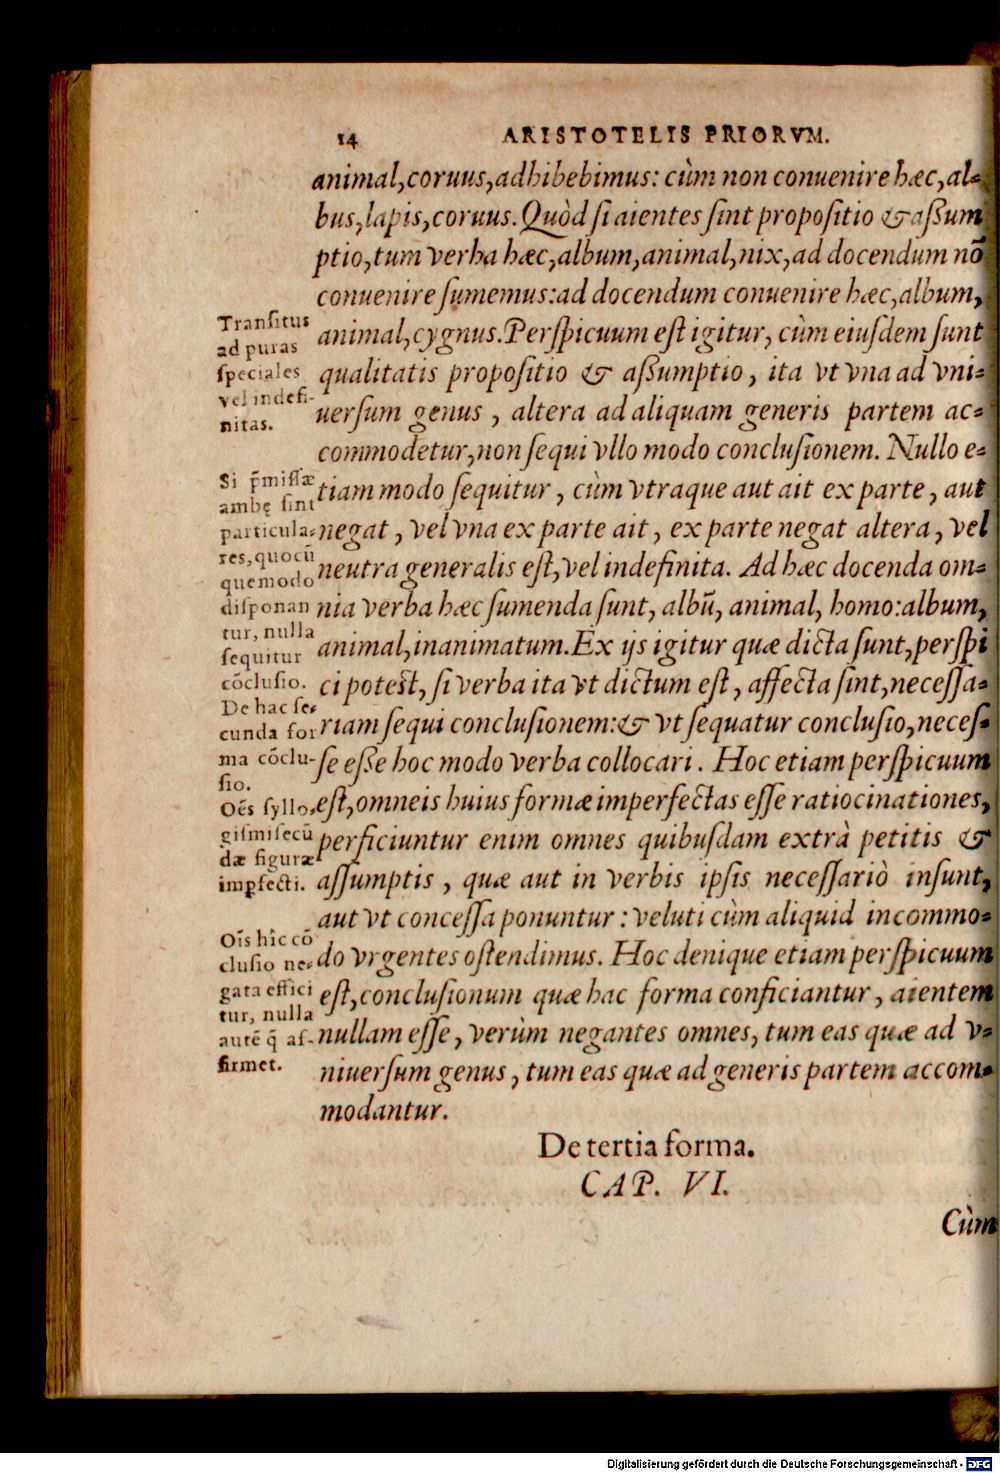 14 ARISTOTELIS PRIORVM.
animal,coruus,adhibebimus: cùm non conuenire hæc,al-
bus,lapis,coruus. Quòd ſi aientes ſint propoſitio & aßum
ptio,tum verba hæc,album,animal,nix,ad docendum nō
conuenire ſumemus:ad docendum conuenire hæc,album,
animal,cygnus. Perſpicuum eſt igitur, cùm eiuſdem ſunt
qualitatis propoſitio & aßumptio, ita vt vna ad vni-
uerſum genus, altera ad aliquam generis partem ac-
commodetur,non ſequi vllo modo concluſionem. Nullo e-
tiam modo ſequitur, cùm vtraque aut ait ex parte, aut
negat, vel vna ex parte ait, ex parte negat altera, vel
neutra generalis eſt,vel indefinita. Ad hæc docenda om-
nia verba hæc ſumenda ſunt, albū, animal, homo:album,
animal,inanimatum. Ex ijs igitur quæ dicta ſunt,perſpi
ci poteſt, ſi verba ita vt dictum eſt, affecta ſint,neceſſa-
riam ſequi concluſionem:& vt ſequatur concluſio,neceſ-
ſe eſſe hoc modo verba collocari. Hoc etiam perſpicuum
eſt,omneis huius formæ imperfectas eſſe ratiocinationes,
perficiuntur enim omnes quibuſdam extrà petitis &
aſſumptis, quæ aut in verbis ipſis neceſſariò inſunt,
aut vt conceſſa ponuntur: veluti cùm aliquid incommo-
do vrgentes oſtendimus. Hoc denique etiam perſpicuum
eſt,concluſionum quæ hac forma conficiantur, aientem
nullam eſſe, verùm negantes omnes, tum eas quæ ad v-
niuerſum genus, tum eas quæ ad generis partem accom-
modantur.
Tranſitus
ad puras
ſpeciales
vel indefi-
nitas.
Si p̄miſſæ
ambę ſint
particula-
res,quocū
quemodo
diſponan
tur, nulla
ſequitur
cōcluſio.
De hac ſe-
cunda for
ma cōclu-
ſio.
Oēs ſyllo-
giſmi ſecū
dæ figuræ
imꝑfecti.
Oīs hic cō
cluſio ne-
gata effici
tur, nulla
autē q̄ af-
firmet.
De tertia forma.
CAP. VI.
Cùm
Digitalisierung gefördert durch die Deutsche Forschungsgemeinschaft - DFG